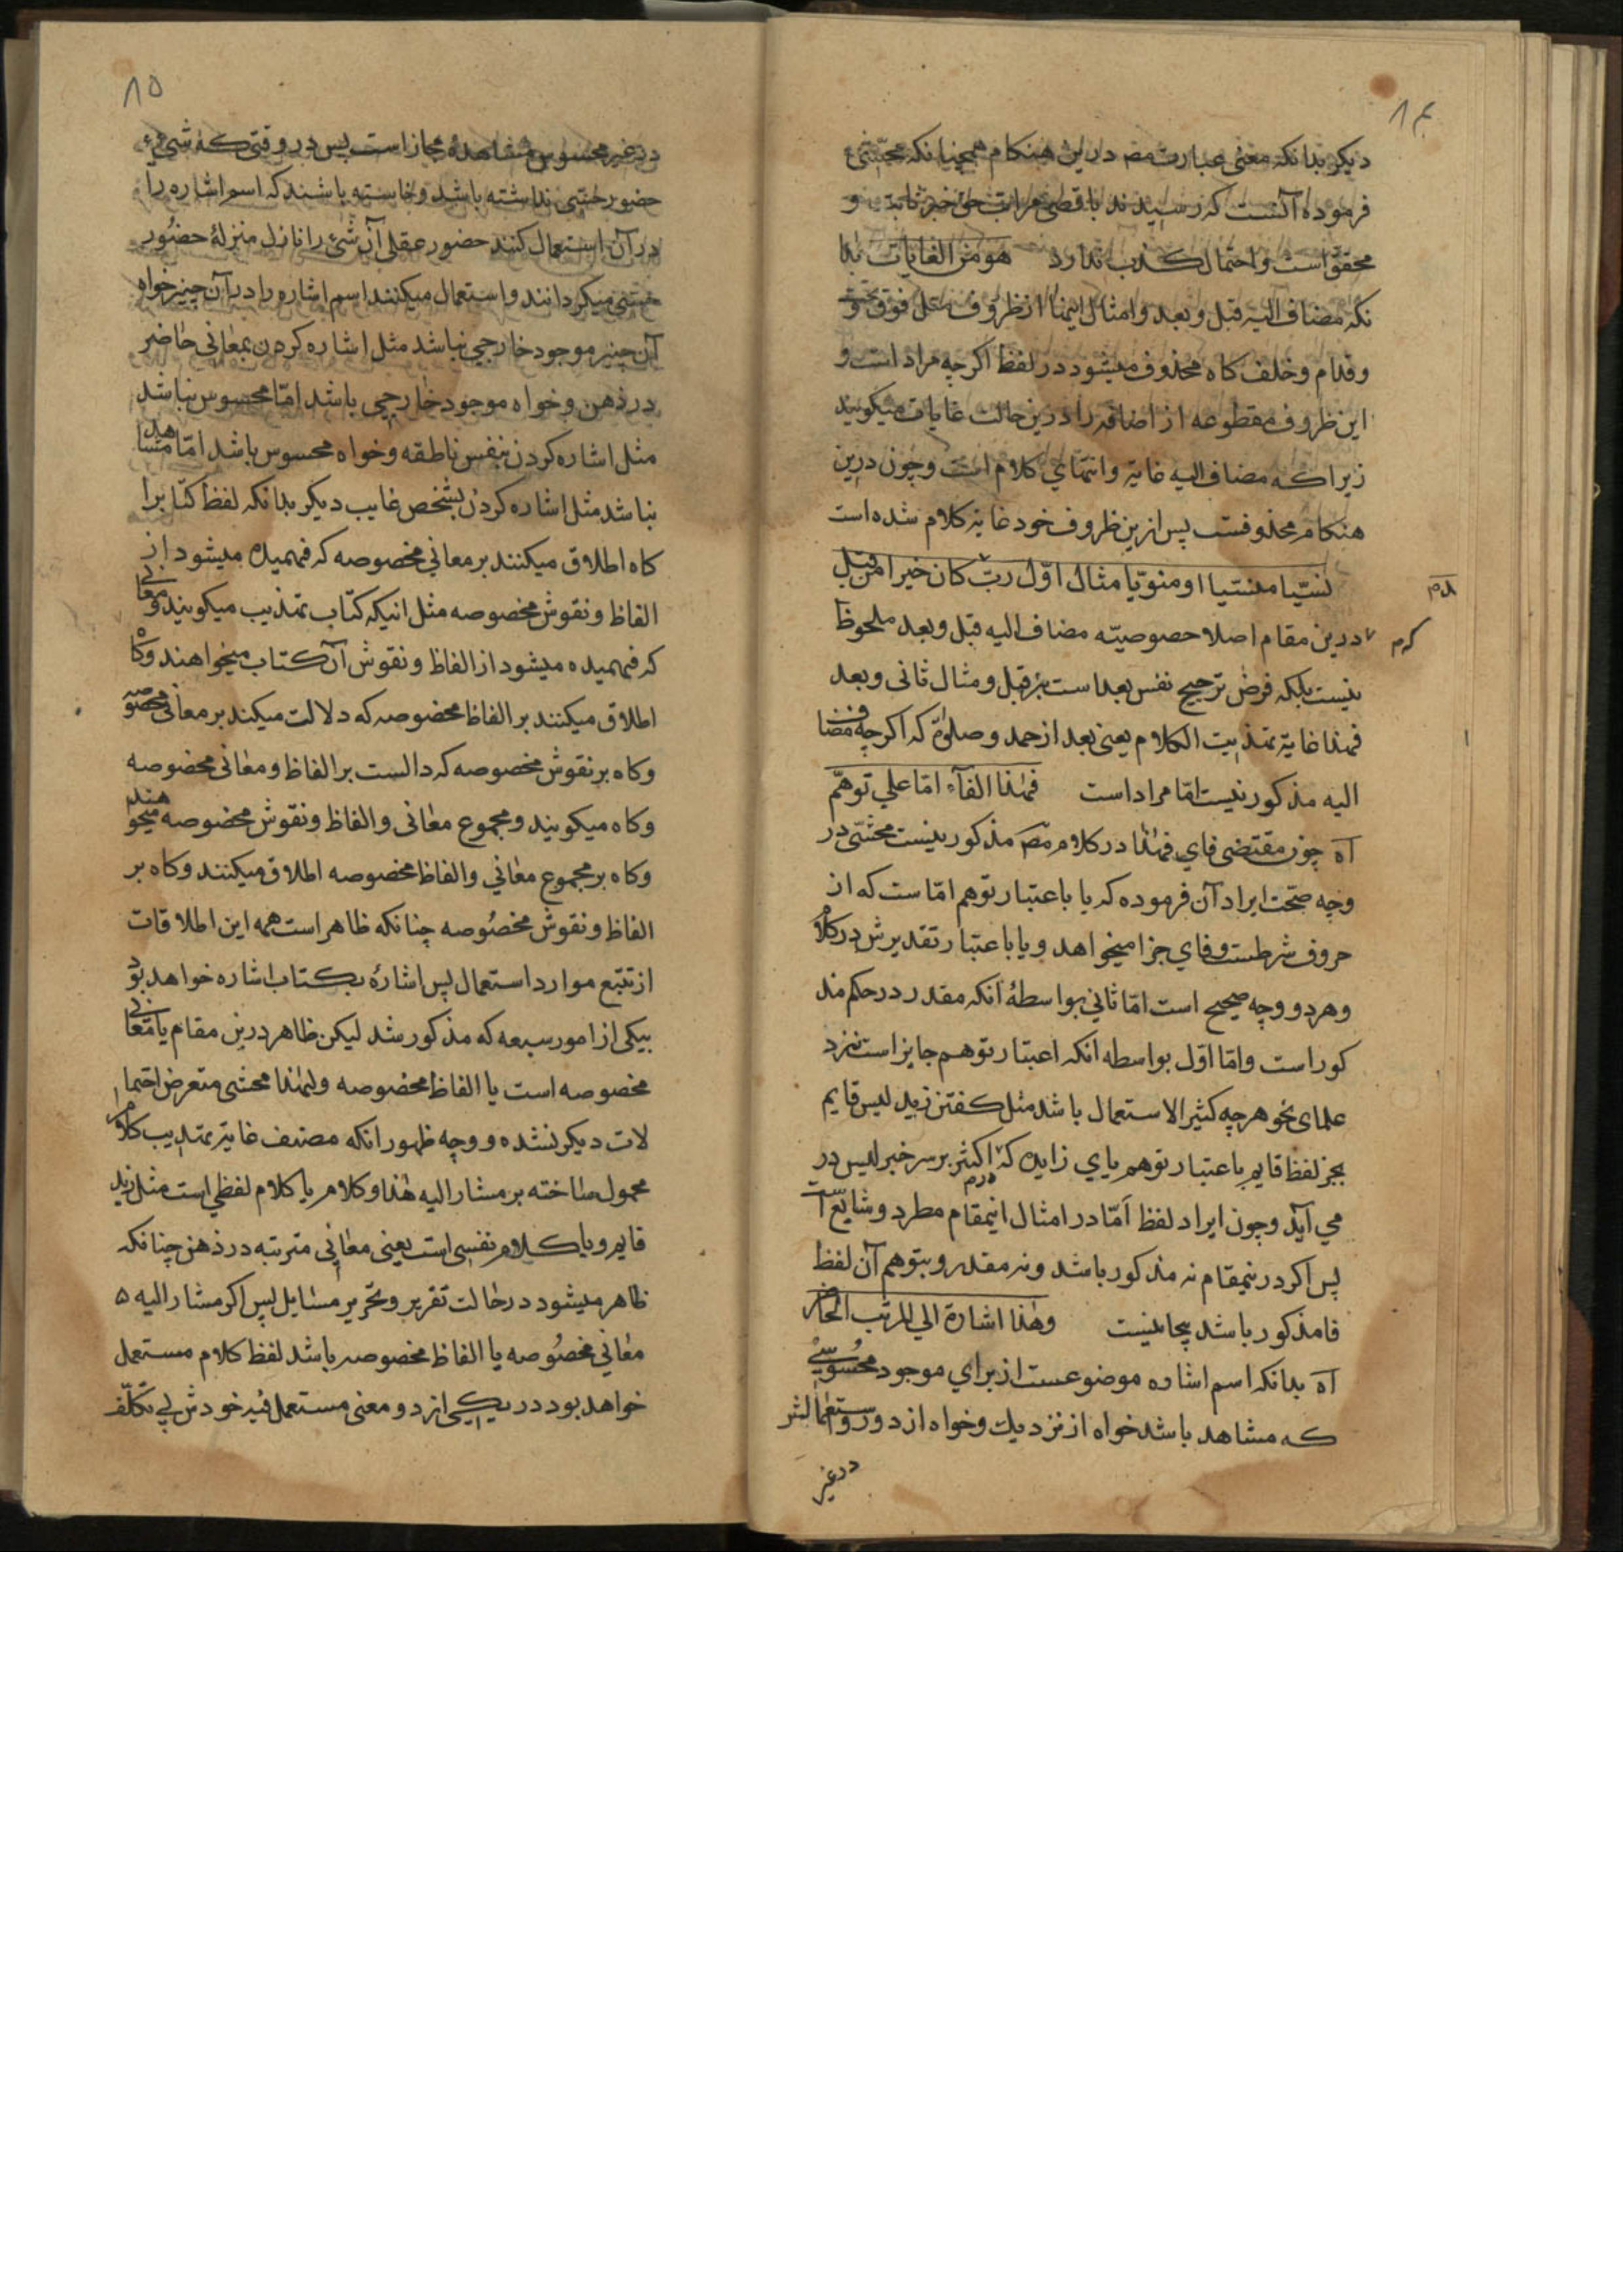 ۸۴
دیکر بدانکه معنی عبارت مصه درین هنکام همچنانکه محشّی
فرموده آنست که رسیدند باقصی مراتب حق خبر ثابت و
محقق است و احتمال کذب ندارد هو من الغایات بدا
نکه مضاف الیه قبل و بعد و امثال اینها از ظروف مثل فوق و تحت
و قدام و خلف کاه محذوف میشود در لفظ اکرچه مراد است و
این ظروف مقطوعه از اضافه را درین حالت غایات میکویند
زیرا که مضاف الیه غایة و انتهای کلام است و چون درین
هنکام محذوفست پس ازین ظروف خود غایة کلام شده است
نسیّا منسیا او منویّا مثال اوّل ربّ کان خیرا من قبل
درین مقام اصلا خصوصیّه مضاف الیه قبل و بعد ملحوظ
نیست بلکه غرض ترجیح نفس بعد است بر قبل و مثال ثانی و بعد
فهذا غایة تهذیب الکلام یعنی بعد از حمد و صلوة که اکرچه مضاف
الیه مذکور نیست امّا مراد است فهذا الفاء امّا علی توهّم
آه چون مقتضی فای فهذا در کلام مصه مذکور نیست محشّی در
وجه صحّت ایراد آن فرموده که یا باعتبار توهم امّا است که از
حروف شرطست و فای جزا میخواهد و یا باعتبار تقدیرش در کلام
و هر دو وجه صحیح است امّا ثانی بواسطهٔ انکه مقدر در حکم مذ
کور است و امّا اوّل بواسطه انکه اعتبار توهم جایز است نزد
علمای نحو هرچه کثیر الاستعمال باشد مثل کفتن زید لیس قایم
بجز لفظ قایم باعتبار توهم بای زایده که اکثر بر سر خبر لیس در
می آید و چون ایراد لفظ امّا در امثال اینمقام مطرد و شایع است
پس اکر درینمقام نه مذکور باشد و نه مقدر و بتوهم آن لفظ
فا مذکور باشد بیجا نیست وهذا اشارة الی المرتب الحاضر
آه بدانکه اسم اشاره موضوعست از برای موجود محسوسی
که مشاهد باشد خواه از نزدیك و خواه از دور و استعمالش
در غیر
۸۵
در غیر محسوس مشاهد مجاز است پس در وقتی که شیء
حضور حسّی نداشته باشد و خاسته باشند که اسم اشاره را
در آن استعمال کنند حضور عقلی آن شیء را نازل منزلهٔ حضور
حسّی میکردانند و استعمال میکنند اسم اشاره را در آن چیز خواه
آن چیز موجود خارجی نباشد مثل اشاره کردن بمعانی حاضر
در ذهن و خواه موجود خارجی باشد امّا محسوس نباشد
مثل اشاره کردن بنفس ناطقه و خواه محسوس باشد امّا مشاهد
نباشد مثل اشاره کردن بشخص غایب دیکر بدانکه لفظ کتابرا
کاه اطلاق میکنند بر معانی مخصوصه که فهمیده میشود از
الفاظ و نقوش مخصوصه مثل انیکه کتاب تهذیب میکویند و معانی
که فهمیده میشود از الفاظ و نقوش آن کتاب میخواهند و کاه
اطلاق میکنند بر الفاظ مخصوصه که دلالت میکند بر معانی مخصوصه
و کاه بر نقوش مخصوصه که دالست بر الفاظ و معانی مخصوصه
و کاه میکویند و مجموع معانی و الفاظ و نقوش مخصوصه میخواهند
و کاه بر مجموع معانی و الفاظ مخصوصه اطلاق میکنند و کاه بر
الفاظ و نقوش مخصوصه چنانکه ظاهر است همه این اطلاقات
از تتبّع موارد استعمال پس اشارهٔ بکتاب اشاره خواهد بود
بیکی از امور سبعه که مذکور شد لیکن ظاهر درین مقام یا معانی
مخصوصه است یا الفاظ مخصوصه ولهذا محشی متعرض احتما
لات دیکر نشده و وجه ظهور انکه مصنف غایة تهذیب کلام
محمول ساخته بر مشار الیه هذا و کلام یا کلام لفظی است مثل زید
قایم و یا کلام نفسی است یعنی معانی مترتبه در ذهن چنانکه
ظاهر میشود در حالت تقریر و تحریر مسایل پس اکر مشار الیه
معانی مخصوصه یا الفاظ مخصوصه باشد لفظ کلام مستعمل
خواهد بود در یکی از دو معنی مستعمل فیه خودش بی تکلّف